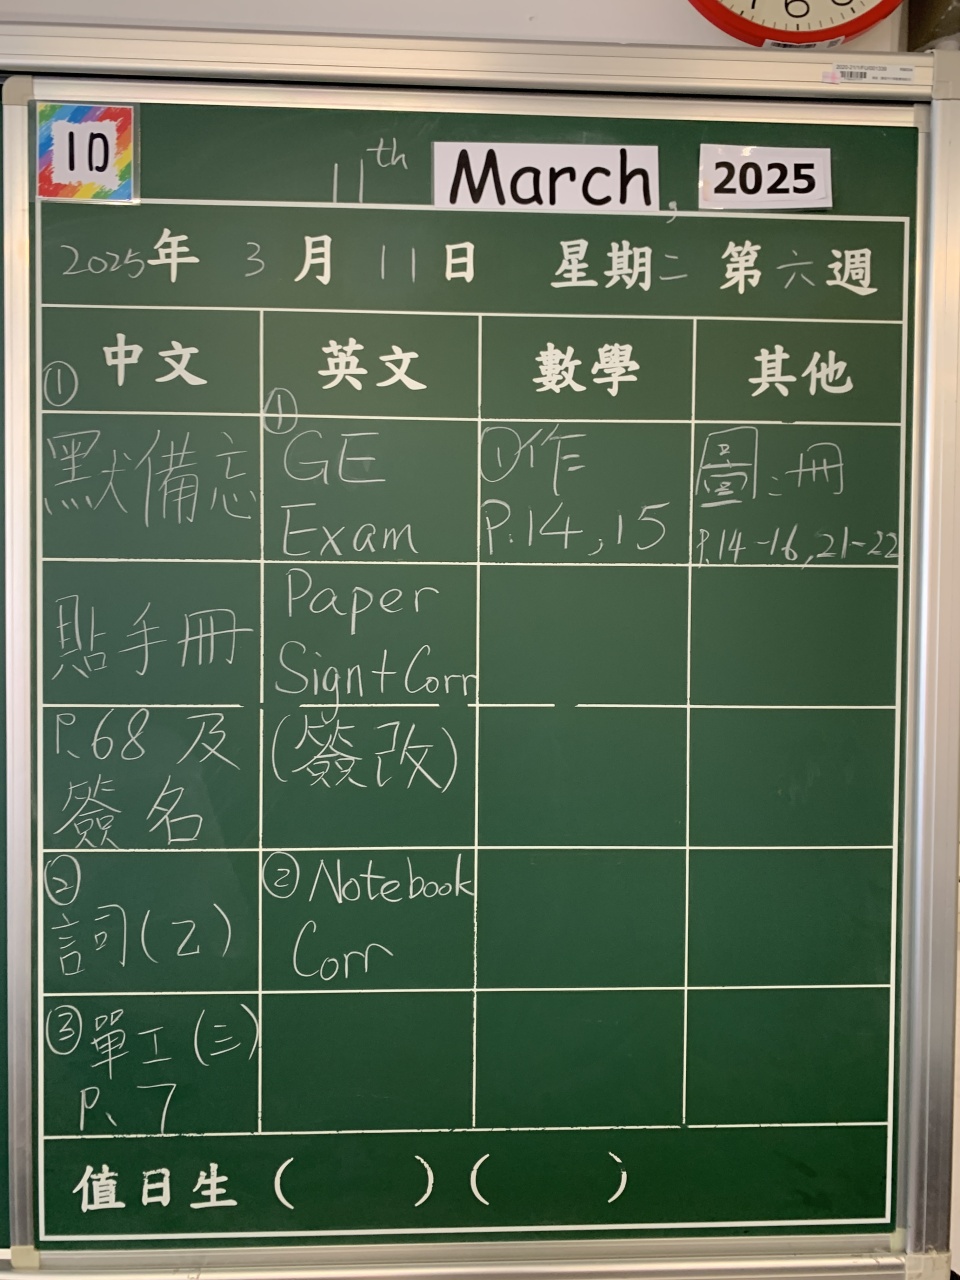 1D
11th March, 2025
2025年 3月 11日 星期二 第六週
中文 英文 數學 其他
①
默備忘
貼手冊
P.68 及
簽名
②
詞(乙)
③ 單工(三)
P. 7
①
GE
Exam
Paper
Sign+Corr
(簽改)
② Notebook
Corr
①作
P.14, 15
圖:冊
P.14-16, 21-22
值日生 ( ) ( )